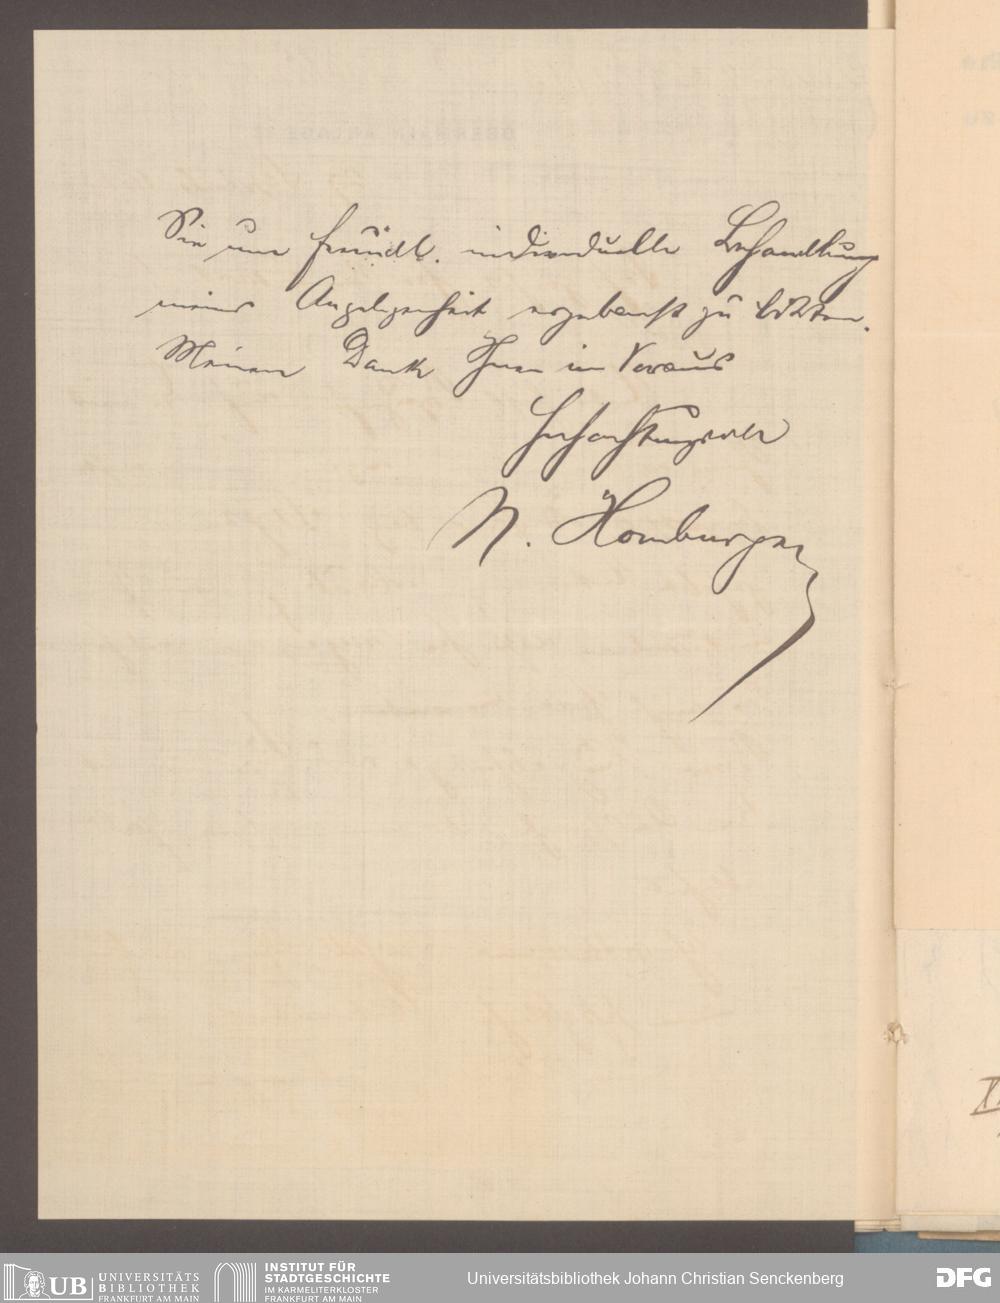 Sie um freundl. individuelle Behandlung
meiner Angelegenheit ergebenst zu bitten.
Meinen Dank Ihnen im Voraus
Hochachtungsvoll
N. Homburger
UB UNIVERSITÄTS
BIBLIOTHEK
FRANKFURT AM MAIN
INSTITUT FÜR
STADTGESCHICHTE
IM KARMELITERKLOSTER
FRANKFURT AM MAIN
Universitätsbibliothek Johann Christian Senckenberg
DFG